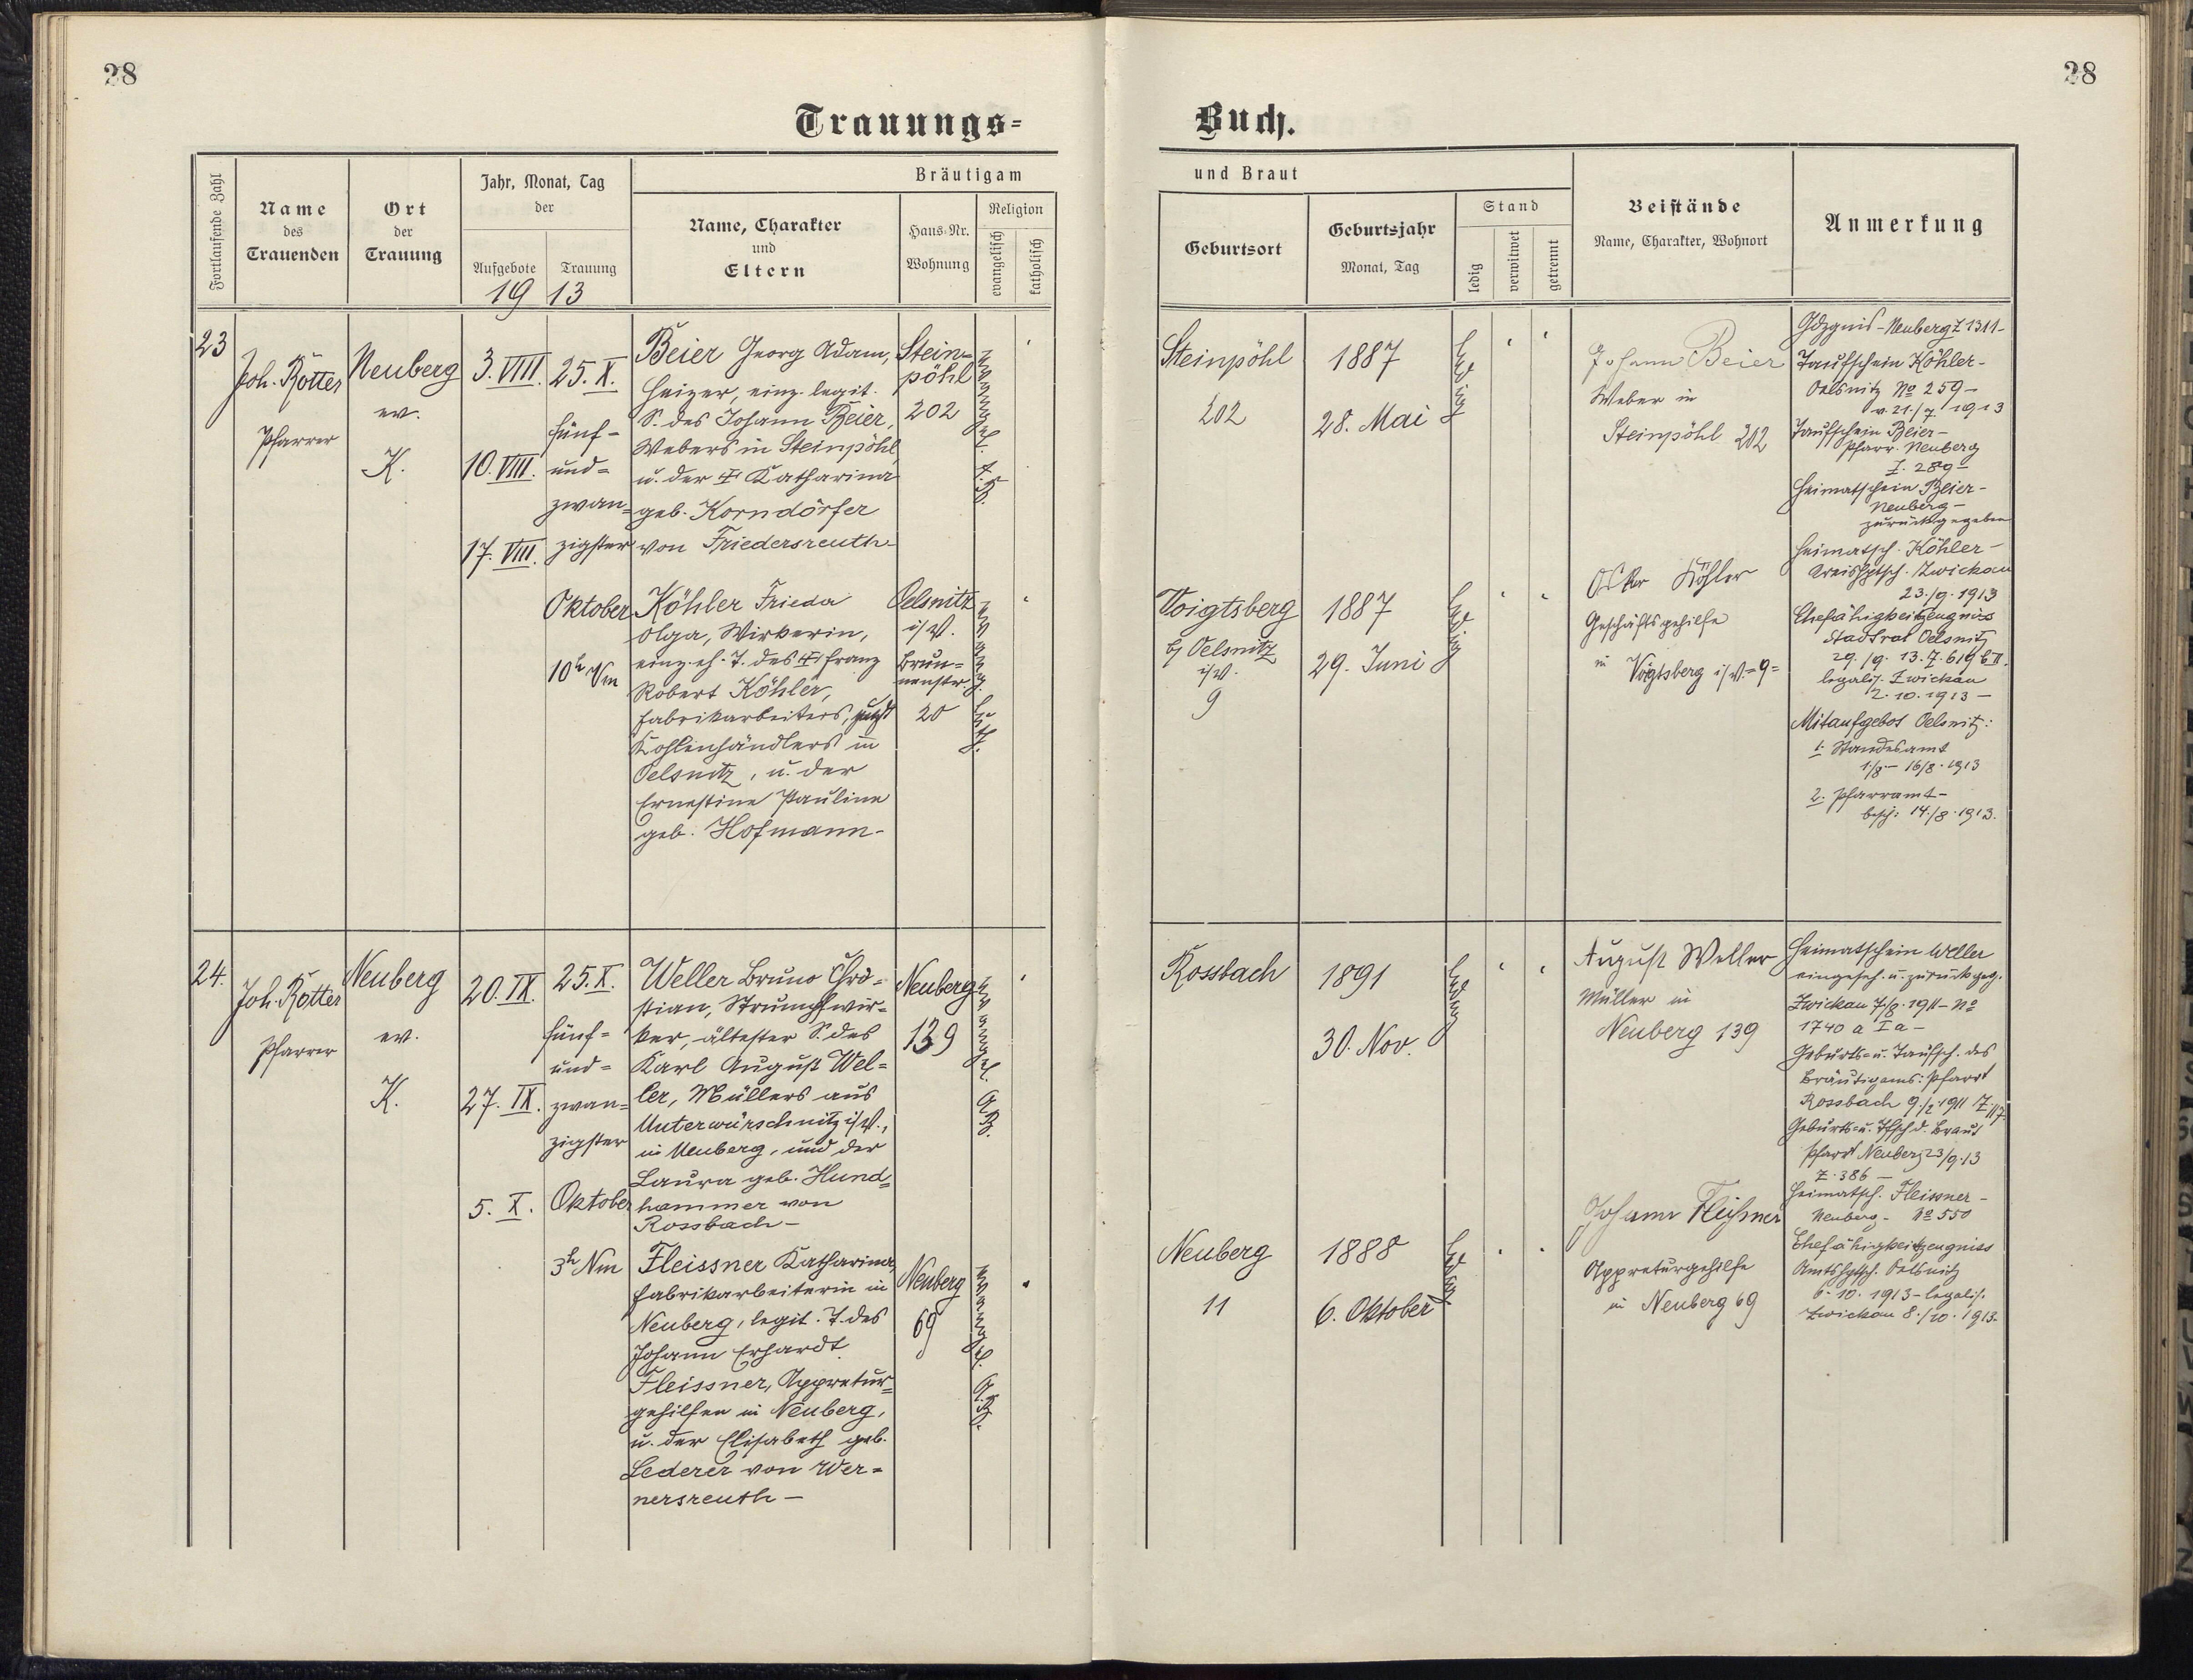 28
28
Trauungs=
Buch.
Fortlaufende Zahl
Name
des
Trauenden
Ort
der
Trauung
Jahr, Monat, Tag
der
Aufgebote
Trauung
19 13
Bräutigam
Name, Charakter
und
Eltern
Haus-Nr.
Wohnung
Religion
evangelisch
katholisch
und Braut
Geburtsort
Geburtsjahr
Monat, Tag
Stand
ledig
verwitwet
getrennt
Beistände
Name, Charakter, Wohnort
Anmerkung
23
Joh. Rotter
Pfarrer
Neuberg
ev.
K.
3. VIII.
10. VIII.
17. VIII.
25. X.
fünf-
und=
zwan=
zigster
Oktober
10h Vm
Beier Georg Adam,
Heizer, einz. legit.
S. des Johann Beier,
Webers in Steinpöhl
u. der Katharina
geb. Korndörfer
von Friedersreuth-
Stein=
pöhl
202
evangel.
A.B.
Köhler Frieda
Olga, Wirkerin,
einz. eh. T. des Franz
Robert Köhler,
Fabrikarbeiters, jetzt
Kohlenhändlers in
Oelsnitz, u. der
Ernestine Pauline
geb. Hofmann-
Oelsnitz
i/V.
Brun=
nenstr.
20
evang.
luth.
Steinpöhl
202
1887
28. Mai
ledig
Johann Beier
Weber in
Steinpöhl 202
Voigtsberg
b/ Oelsnitz
i/V.
9
1887
29. Juni
ledig
Oskar Köhler
Geschäftsgehilfe
in Voigtsberg i/V.=9=
Gdzgnis-Neuberg Z 1311-
Taufschein Köhler-
Oelsnitz No 259-
v. 21./7. 1913
Taufschein Beier-
Pfarr. Neuberg
Z. 289-
Heimatschein Beier-
Neuberg-
zurückgegeben
Heimatsch. Köhler-
Kreishptsch. Zwickau
23./9. 1913
Ehefähigkeitszeugniss
Stadtrat Oelsnitz
29./9. 13. Z. 619 b II.
legalis. Zwickau
2. 10. 1913-
Mitaufgebot Oelsnitz:
1. Standesamt
1./8- 16/8. 1913
2. Pfarramt-
besch: 14./8. 1913.
24.
Joh. Rotter
Pfarrer
Neuberg
ev.
K.
20. IX.
27. IX.
5. X.
25. X.
fünf=
und=
zwan=
zigster
Oktober
3h Nm
Weller Bruno Chri=
stian, Strumpfwir=
ker, ältester S. des
Karl August Wel=
ler, Müllers aus
Unterwürschnitz i/V.,
in Neuberg, und der
Laura geb. Hund=
hammer von
Rossbach-
Neuberg
139
evangel.
A.B.
Fleissner Katharina
Fabrikarbeiterin in
Neuberg, legit. T. des
Johann Erhardt
Fleissner, Appretur=
gehilfen in Neuberg,
u. der Elisabeth geb.
Lederer von Wer=
nersreuth-
Neuberg
69
evangel.
A.B.
Rossbach
1891
30. Nov.
ledig
August Weller
Müller in
Neuberg 139
Neuberg
11
1888
6. Oktober
ledig
Johann Fleißner
Appreturgehilfe
in Neuberg 69
Heimatschein Weller
eingeseh. u. zurückgeg.
Zwickau 7./8. 1911- No
1740 a I a-
Geburts- u. Taufsch. des
Bräutigams: Pfarrt
Rossbach 9./2. 1911 Z. 117.
Geburts- u. Tfsch d. Braut
Pfarrt Neuberg 23/9. 13
Z. 386-
Heimatsch. Fleissner-
Neuberg- No 550
Ehefähigkeitszeugniss
Amtshptsch. Oelsnitz
6. 10. 1913- legalis.
Zwickau 8./10. 1913-